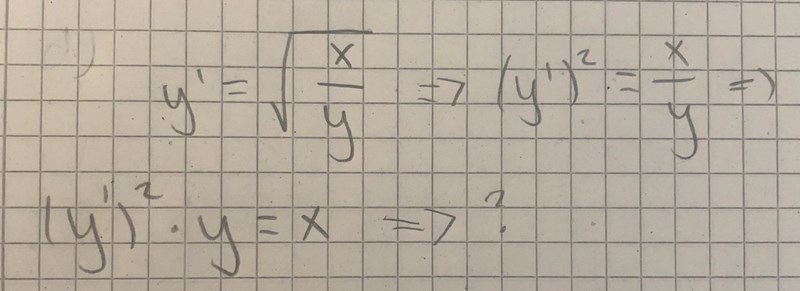 y' = √(x/y) => (y')² = x/y =>
(y')² · y = x => ?